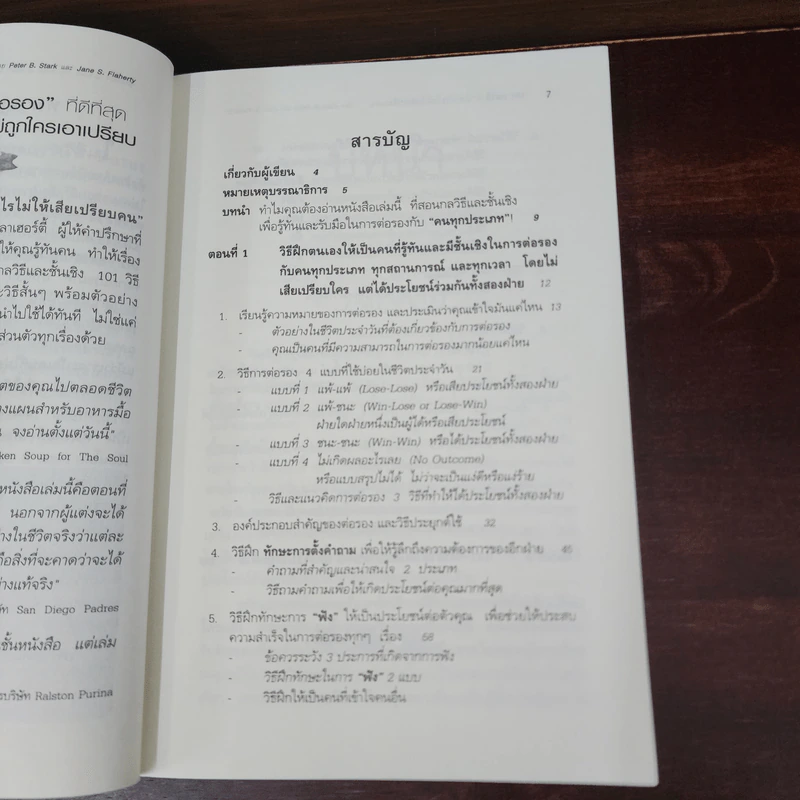 Peter B. Stark และ Jane S. Flaherty
ที่ดีที่สุด
ถูกใครเอาเปรียบ
ไรไม่ให้เสียเปรียบคน"
ลาเฮอร์ตี้ ผู้ให้คำปรึกษาที่
ให้คุณรู้ทันคน ทำให้เรื่อง
กลวิธีและชั้นเชิง 101 วิธี
ะวิธีสั้นๆ พร้อมตัวอย่าง
นำไปใช้ได้ทันที ไม่ใช่แค่
ส่วนตัวทุกเรื่องด้วย
ตของคุณไปตลอดชีวิต
างแผนสำหรับอาหารมื้อ
จงอ่านตั้งแต่วันนี้"
ken Soup for The Soul
หนังสือเล่มนี้คือตอนที่
นอกจากผู้แต่งจะได้
่างในชีวิตจริงว่าแต่ละ
ถือสิ่งที่จะคาดว่าจะได้
่างแท้จริง"
ษัท San Diego Padres
ชั้นหนังสือ แต่เล่ม
รบริษัท Ralston Purina
7
สารบัญ
เกี่ยวกับผู้เขียน 4
หมายเหตุบรรณาธิการ 5
บทนำ ทำไมคุณต้องอ่านหนังสือเล่มนี้ ที่สอนกลวิธีและชั้นเชิง
เพื่อรู้ทันและรับมือในการต่อรองกับ "คนทุกประเภท"! 9
ตอนที่ 1 วิธีฝึกตนเองให้เป็นคนที่รู้ทันและมีชั้นเชิงในการต่อรอง
กับคนทุกประเภท ทุกสถานการณ์ และทุกเวลา โดยไม่
เสียเปรียบใคร แต่ได้ประโยชน์ร่วมกันทั้งสองฝ่าย 12
1. เรียนรู้ความหมายของการต่อรอง และประเมินว่าคุณเข้าใจมันแค่ไหน 13
- ตัวอย่างในชีวิตประจำวันที่ต้องเกี่ยวข้องกับการต่อรอง
- คุณเป็นคนที่มีความสามารถในการต่อรองมากน้อยแค่ไหน
2. วิธีการต่อรอง 4 แบบที่ใช้บ่อยในชีวิตประจำวัน 21
- แบบที่ 1 แพ้-แพ้ (Lose-Lose) หรือเสียประโยชน์ทั้งสองฝ่าย
- แบบที่ 2 แพ้-ชนะ (Win-Lose or Lose-Win)
ฝ่ายใดฝ่ายหนึ่งเป็นผู้ได้หรือเสียประโยชน์
- แบบที่ 3 ชนะ-ชนะ (Win-Win) หรือได้ประโยชน์ทั้งสองฝ่าย
- แบบที่ 4 ไม่เกิดผลอะไรเลย (No Outcome)
หรือแบบสรุปไม่ได้ ไม่ว่าจะเป็นแง่ดีหรือแง่ร้าย
- วิธีและแนวคิดการต่อรอง 3 วิธีที่ทำให้ได้ประโยชน์ทั้งสองฝ่าย
3. องค์ประกอบสำคัญของต่อรอง และวิธีประยุกต์ใช้ 32
4. วิธีฝึก ทักษะการตั้งคำถาม เพื่อให้รู้ลึกถึงความต้องการของอีกฝ่าย 45
- คำถามที่สำคัญและน่าสนใจ 2 ประเภท
- วิธีถามคำถามเพื่อให้เกิดประโยชน์ต่อคุณมากที่สุด
5. วิธีฝึกทักษะการ "ฟัง" ให้เป็นประโยชน์ต่อตัวคุณ เพื่อช่วยให้ประสบ
ความสำเร็จในการต่อรองทุกๆ เรื่อง 58
- ข้อควรระวัง 3 ประการที่เกิดจากการฟัง
- วิธีฝึกทักษะในการ "ฟัง" 2 แบบ
- วิธีฝึกให้เป็นคนที่เข้าใจคนอื่น